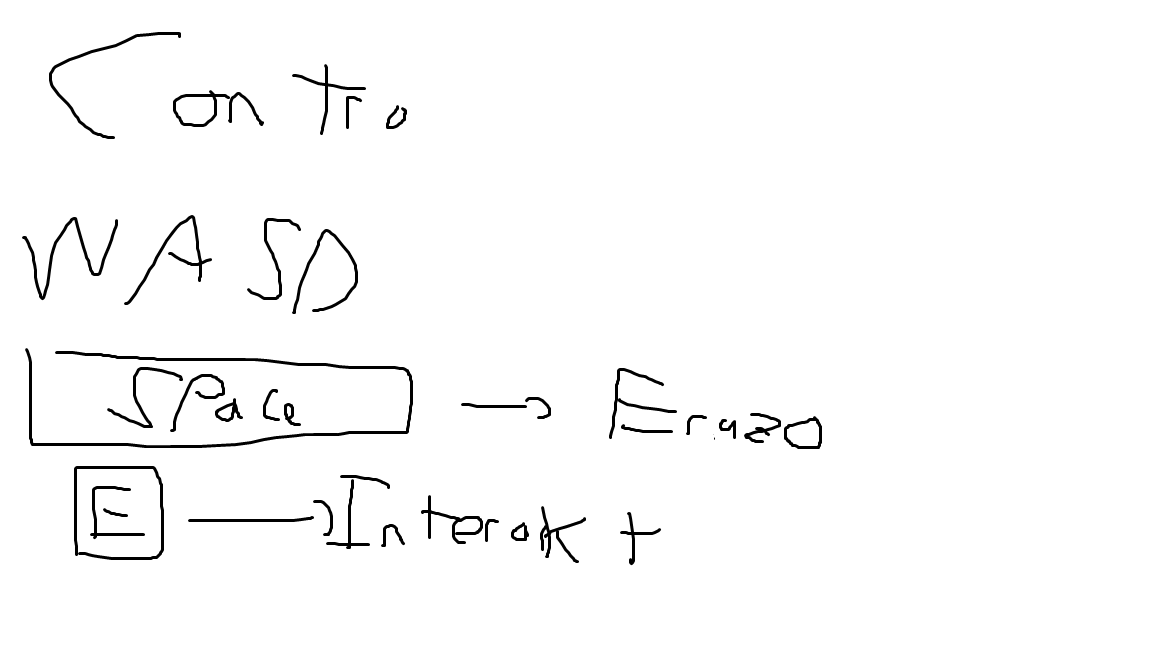 Contro
WASD
Space → Erazo
E → Interakt